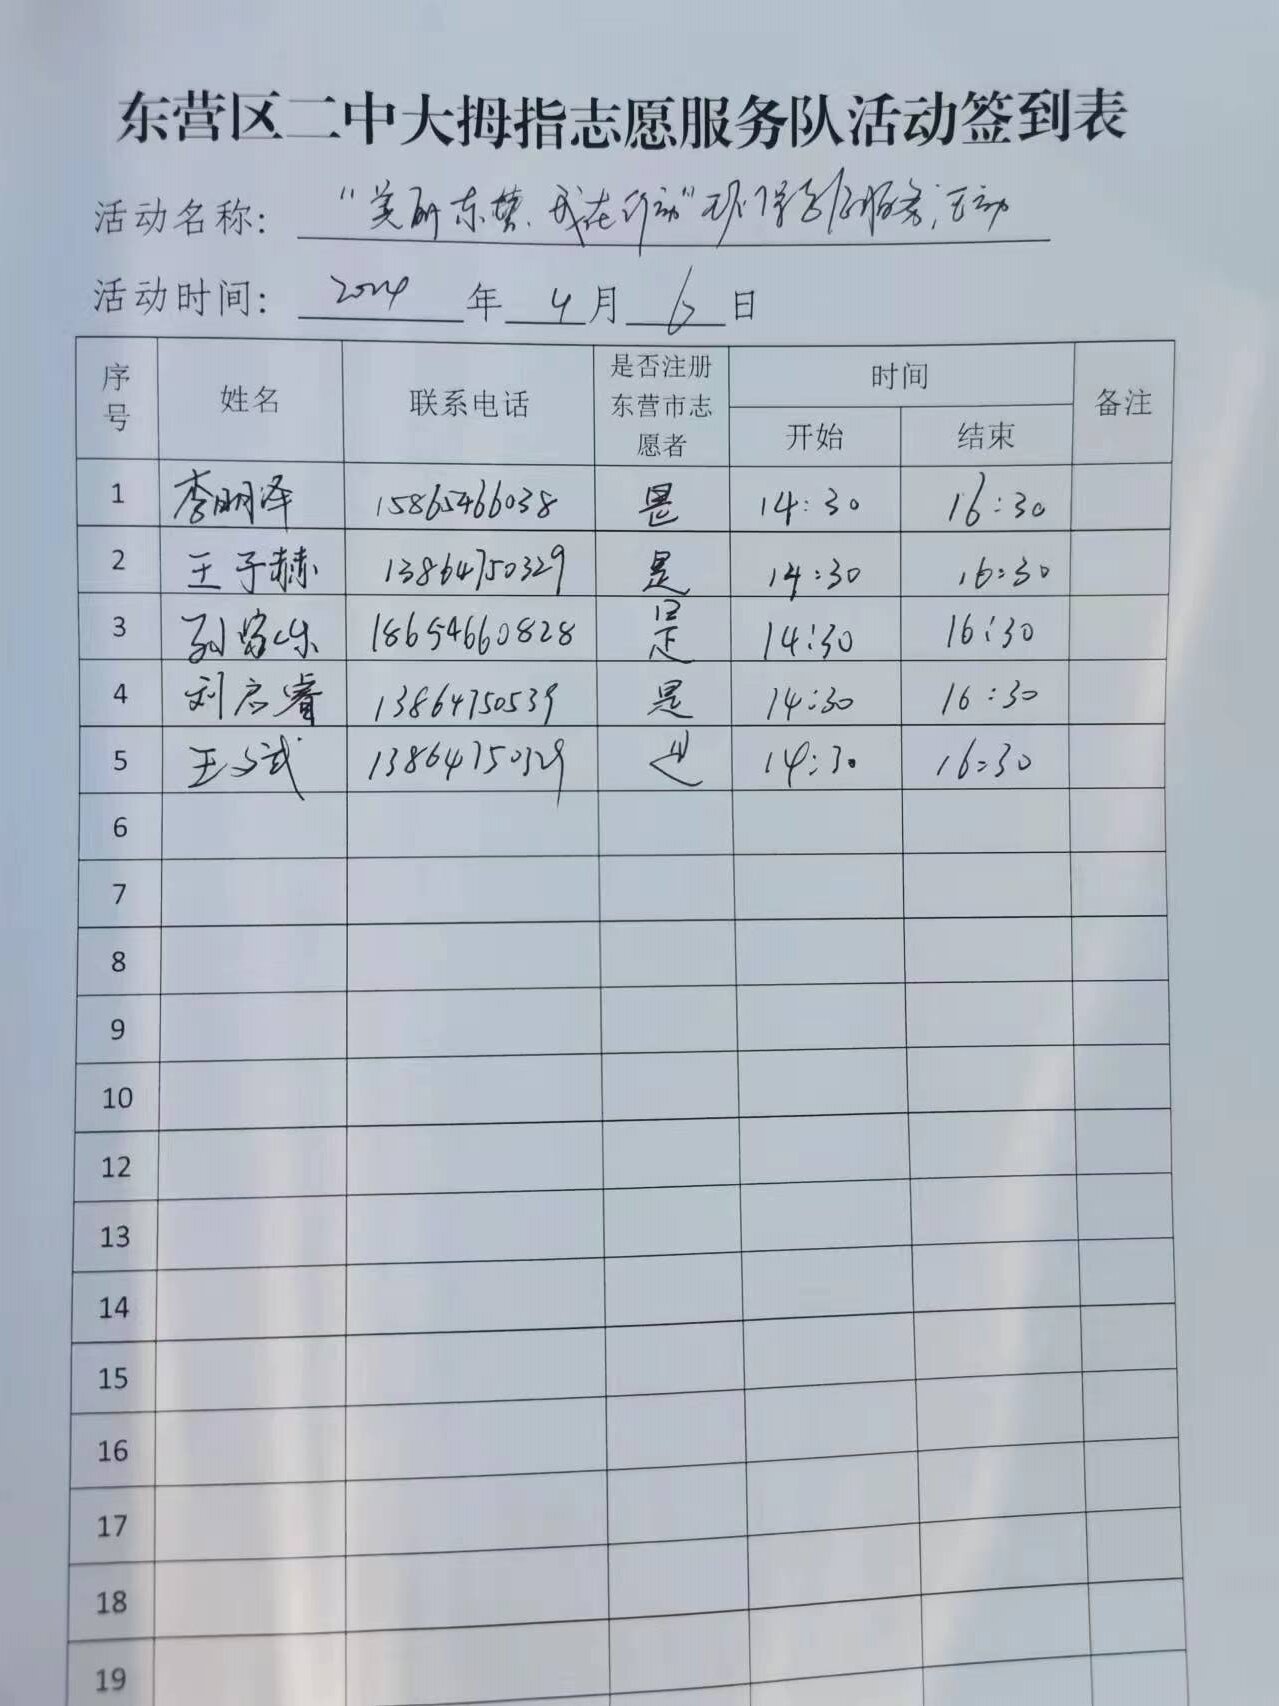 东营区二中大拇指志愿服务队活动签到表
活动名称: “美丽东营.我在行动”志愿服务活动
活动时间: 2024 年 4 月 6 日
序号 姓名 联系电话 是否注册东营市志愿者 时间 备注
开始 结束
1 李明泽 15865466038 是 14:30 16:30
2 王子赫 13864750329 是 14:30 16:30
3 孙 18654660828 是 14:30 16:30
4 刘启睿 13864750539 是 14:30 16:30
5 王 13864750329 14:30 16:30
6
7
8
9
10
12
13
14
15
16
17
18
19